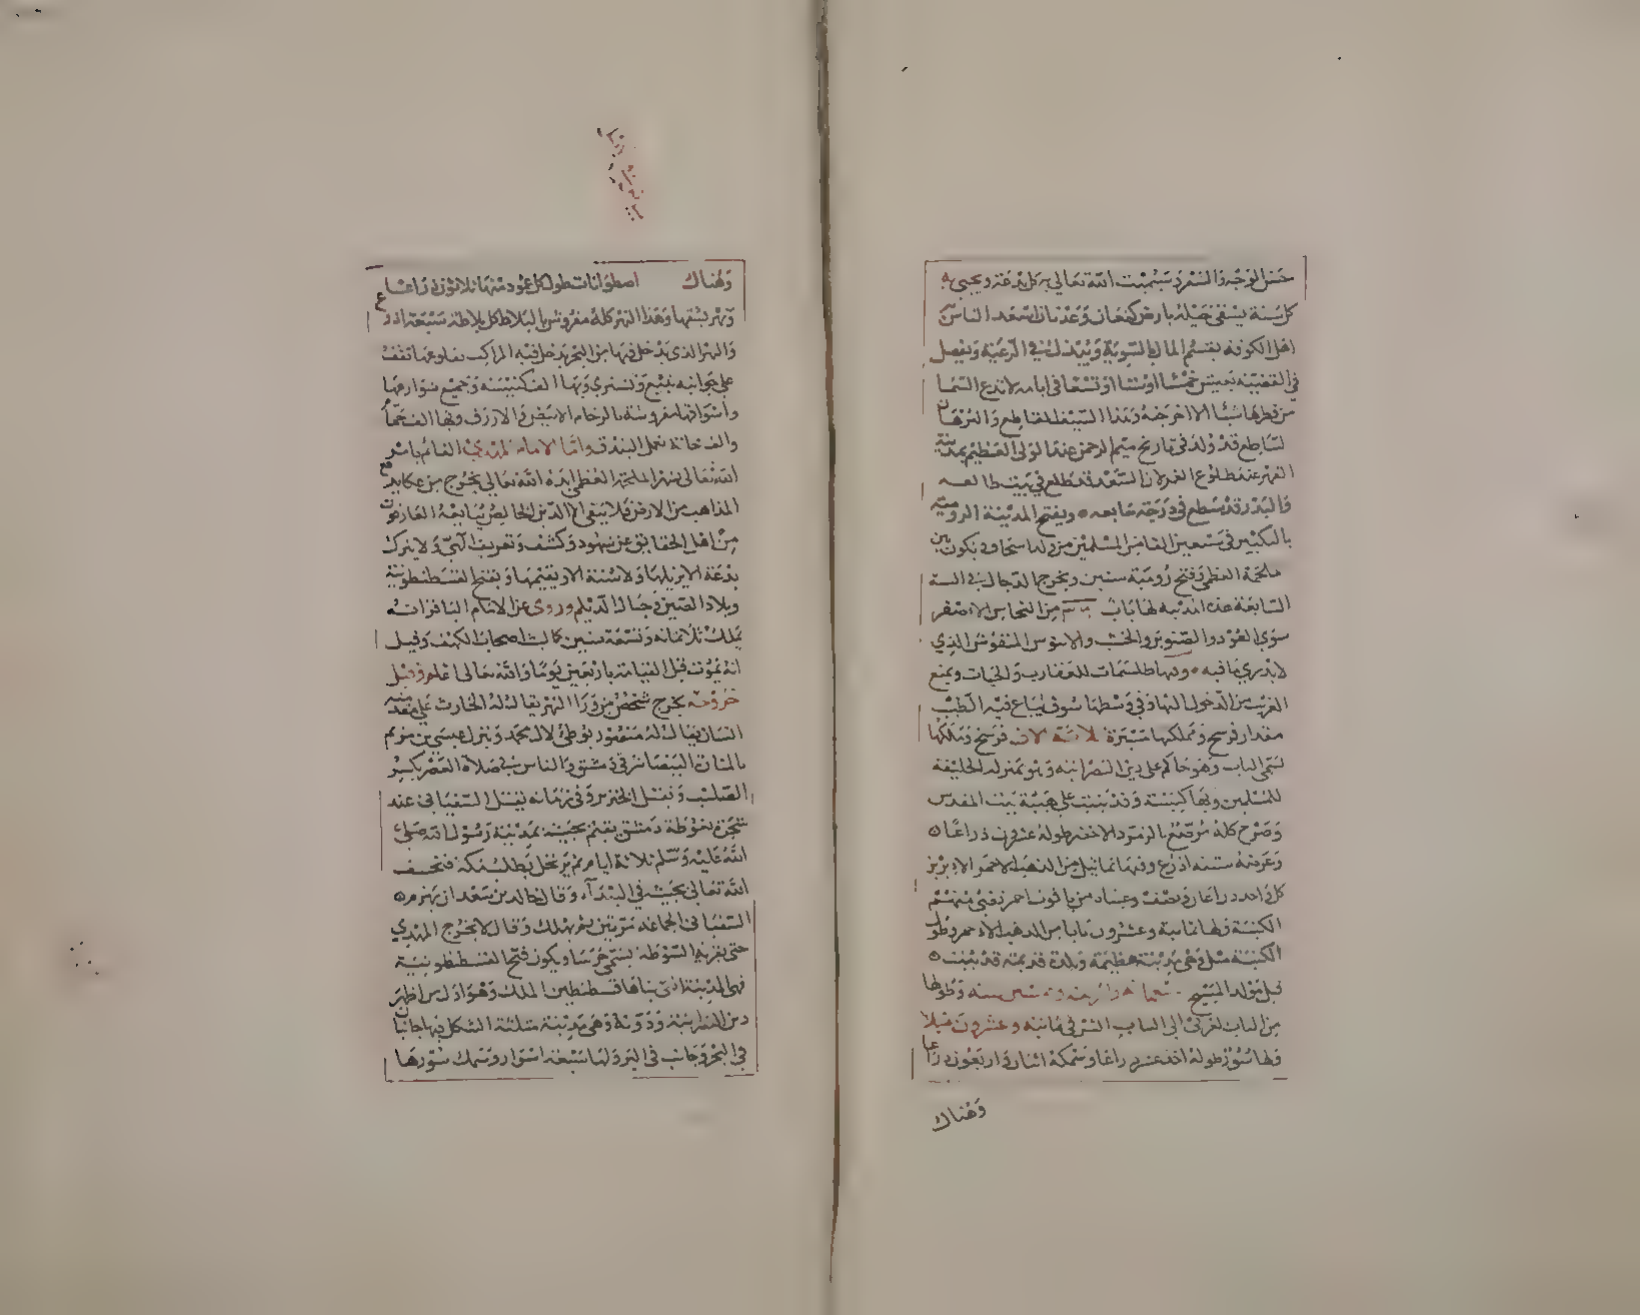 حسن الوجه والشعر يثبت الله تعالى به كل بدعة ويحيي به
كل سنة يسقي خيله بارض كنعان وعدنان اسعد الناس
اهل الكوفة يقسم المال بالسوية ويعدل في الرعية ويفصل
في القضية يعيش خمسا او ستا او تسعا في ايامه لا تدع السما
من قطرها شيئا الا اخرجته وهذا السيف القاطع والبرهان
الساطع قد ولد في تاريخ ميم الرحمن عند المولى العظيم بمدينة
القهر عند طلوع الغر لان السعد قد طلع في بيت طالعه
والبدر قد سطع في درجة سابعه ويفتح المدينة الرومية
بالتكبير في سبعين الفا من المسلمين من ولد اسحاق ويكون بين
ملحمة العظمى وفتح رومية سنين ويخرج الدجال في السنة
السابعة هذه المدينة لها باب من النحاس الاصفر
سوى العود والصنوبر والخشب والابنوس المنقوش الذي
لا يدرى ما فيه وبها طلسمات للعقارب والحيات ويمنع
الغريب من الدخول اليها وفي وسطها سوق يباع فيه الطيب
مقدار فرسخ ومملكتها مسيرة ثلاثة الاف فرسخ وملكها
يسمى الباب وهو حاكم على دين النصرانية وهو بمنزلة الخليفة
للمسلمين وبها كنيسة وقد بنيت على هيئة بيت المقدس
وصرح كله مرصع بالزمرد الاخضر طوله عشرون ذراعا
وعرضه ستة اذرع وفيها تماثيل من الذهب الاحمر الابريز
كل واحد ذراعا ونصف وعيناه من ياقوت احمر تضيء منهم
الكنيسة ولها ثمانية وعشرون بابا من الذهب الاحمر وطول
الكنيسة ميل وهي مدينة عظيمة وبلدة قديمة قد بنيت
قبل مولد المسيح وطولها
من الباب الغربي الى الباب الشرقي ثمانية وعشرون ميلا
ولها سور طوله احد عشر ذراعا وسمكه اثنان واربعون ذراعا
وهناك
وهناك اصطوانات طول كل عمود منها ثلاثون ذراعا
ونهر يشقها وهذا النهر كله مفروش بالبلاط كل بلاطة سبعة اذرع
والنهر الذي يدخل فيها من البحر يدخل فيه المراكب
على جوانبه تبيع وتشتري وبها الف كنيسة وجميع شوارعها
واسواقها مفروشة بالرخام الابيض والازرق وبها الف حمام
والف خانة تعمل البندق واما الامام المهدي القائم بامر
الله تعالى العظمى ايده الله تعالى يخرج من مكة يرفع
المذاهب من الارض فلا يبقى الا الدين الخالص يبايعه العارفون
من اهل الحقايق عن شهود وكشف وتعريف الهي ولا يترك
بدعة الا يزيلها ولا سنة الا ويقيمها ويفتح القسطنطونية
وبلاد الصين وجبال الديلم وروى عن الامام الباقر انه
يملك ثلاثمائة وتسعة سنين كما لبث اصحاب الكهف وقيل
انه يموت قبل القيامة باربعين يوما والله تعالى اعلم وقبل
خروجه يخرج شخص من ورا النهر يقال له الخارث على مقدمته
انسان يقال له منصور يوطئ لال محمد وينزل عيسى بن مريم
بالمنارة البيضا شرقي دمشق والناس في صلاة العصر يكسر
الصليب ويقتل الخنزير وفي زمانه يقتل السفياني عند
شجرة بغوطة دمشق يقيم بجيشه بمدينة رسول الله صلى
الله عليه وسلم ثلاثة ايام ثم يرحل يطلب مكة فيخسف
الله تعالى بجيشه في البيداء وقال خالد بن سعدان يهزم
السفياني الجماعة مرتين ثم يهلك وقال لا يخرج المهدي
حتى بقرية الغوطة يسمى حرستا ويكون فتح القسطنطونية
فهي المدينة التي بناها قسطنطين الملك وهو اول من اظهر
دين النصرانية ودونه وهي مدينة مثلثة الشكل فيها جانبان
في البحر وجانب في البر ولها سبعة اسوار وسمك سورها